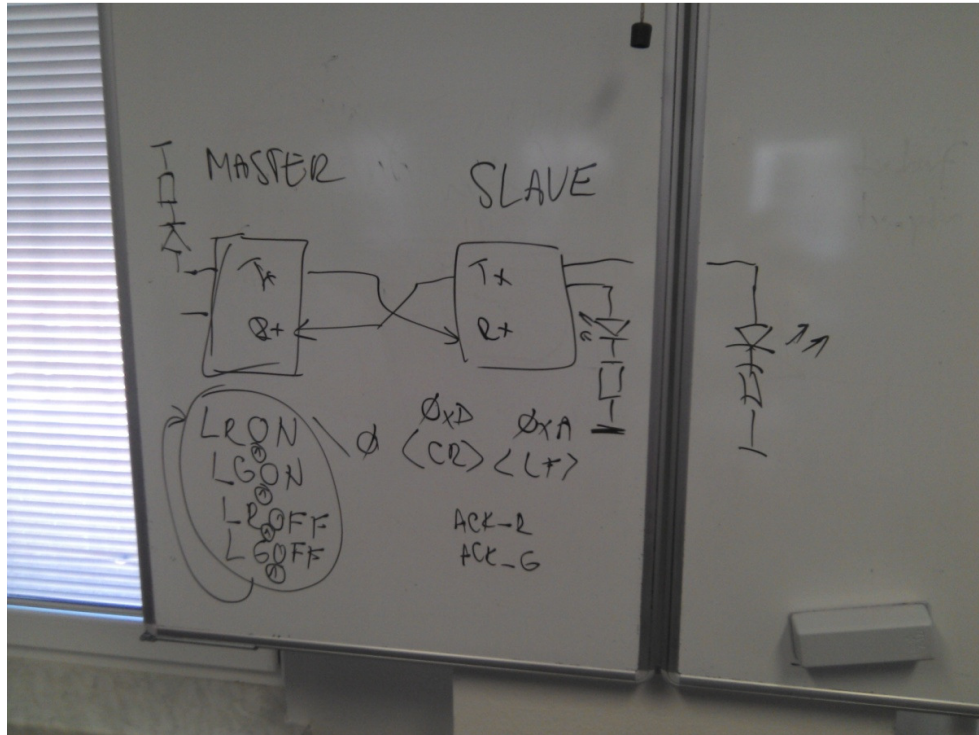 MASTER
SLAVE
Tx
Rx
Tx
Rx
LRON
LGON
LROFF
LGOFF
Ø
ØxD
<CR>
ØxA
<LF>
ACK_R
ACK_G